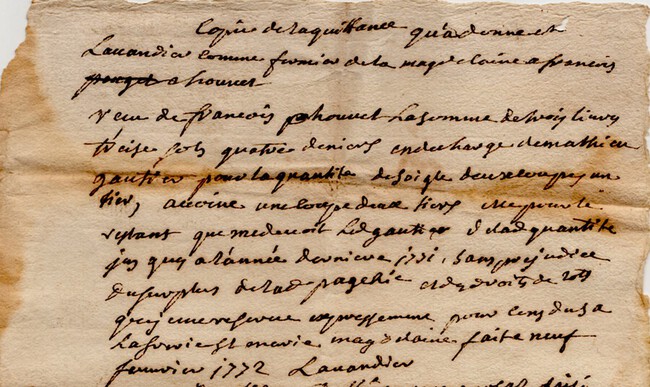 Copie de la quittance qu'a donne et
Lavandier comme fermier de la magdelaine a francois
a houvet
reeu de francois phouvet la somme de trois livres
treise sols quatre deniers en decharge de mathieu
gautier pour la quantite de soigle deux coupes un
tier, avoine une coupe deux tiers et ce pour le
restant que me devoit led gautier de lad quantite
jus quy a l'année derniere 1771, sans prejudice
du surplus de lad pagesie et des droits de
que je me reserve expressement pour cens du a
St marie magdelaine faite neuf
fevrier 1772 Lavandier